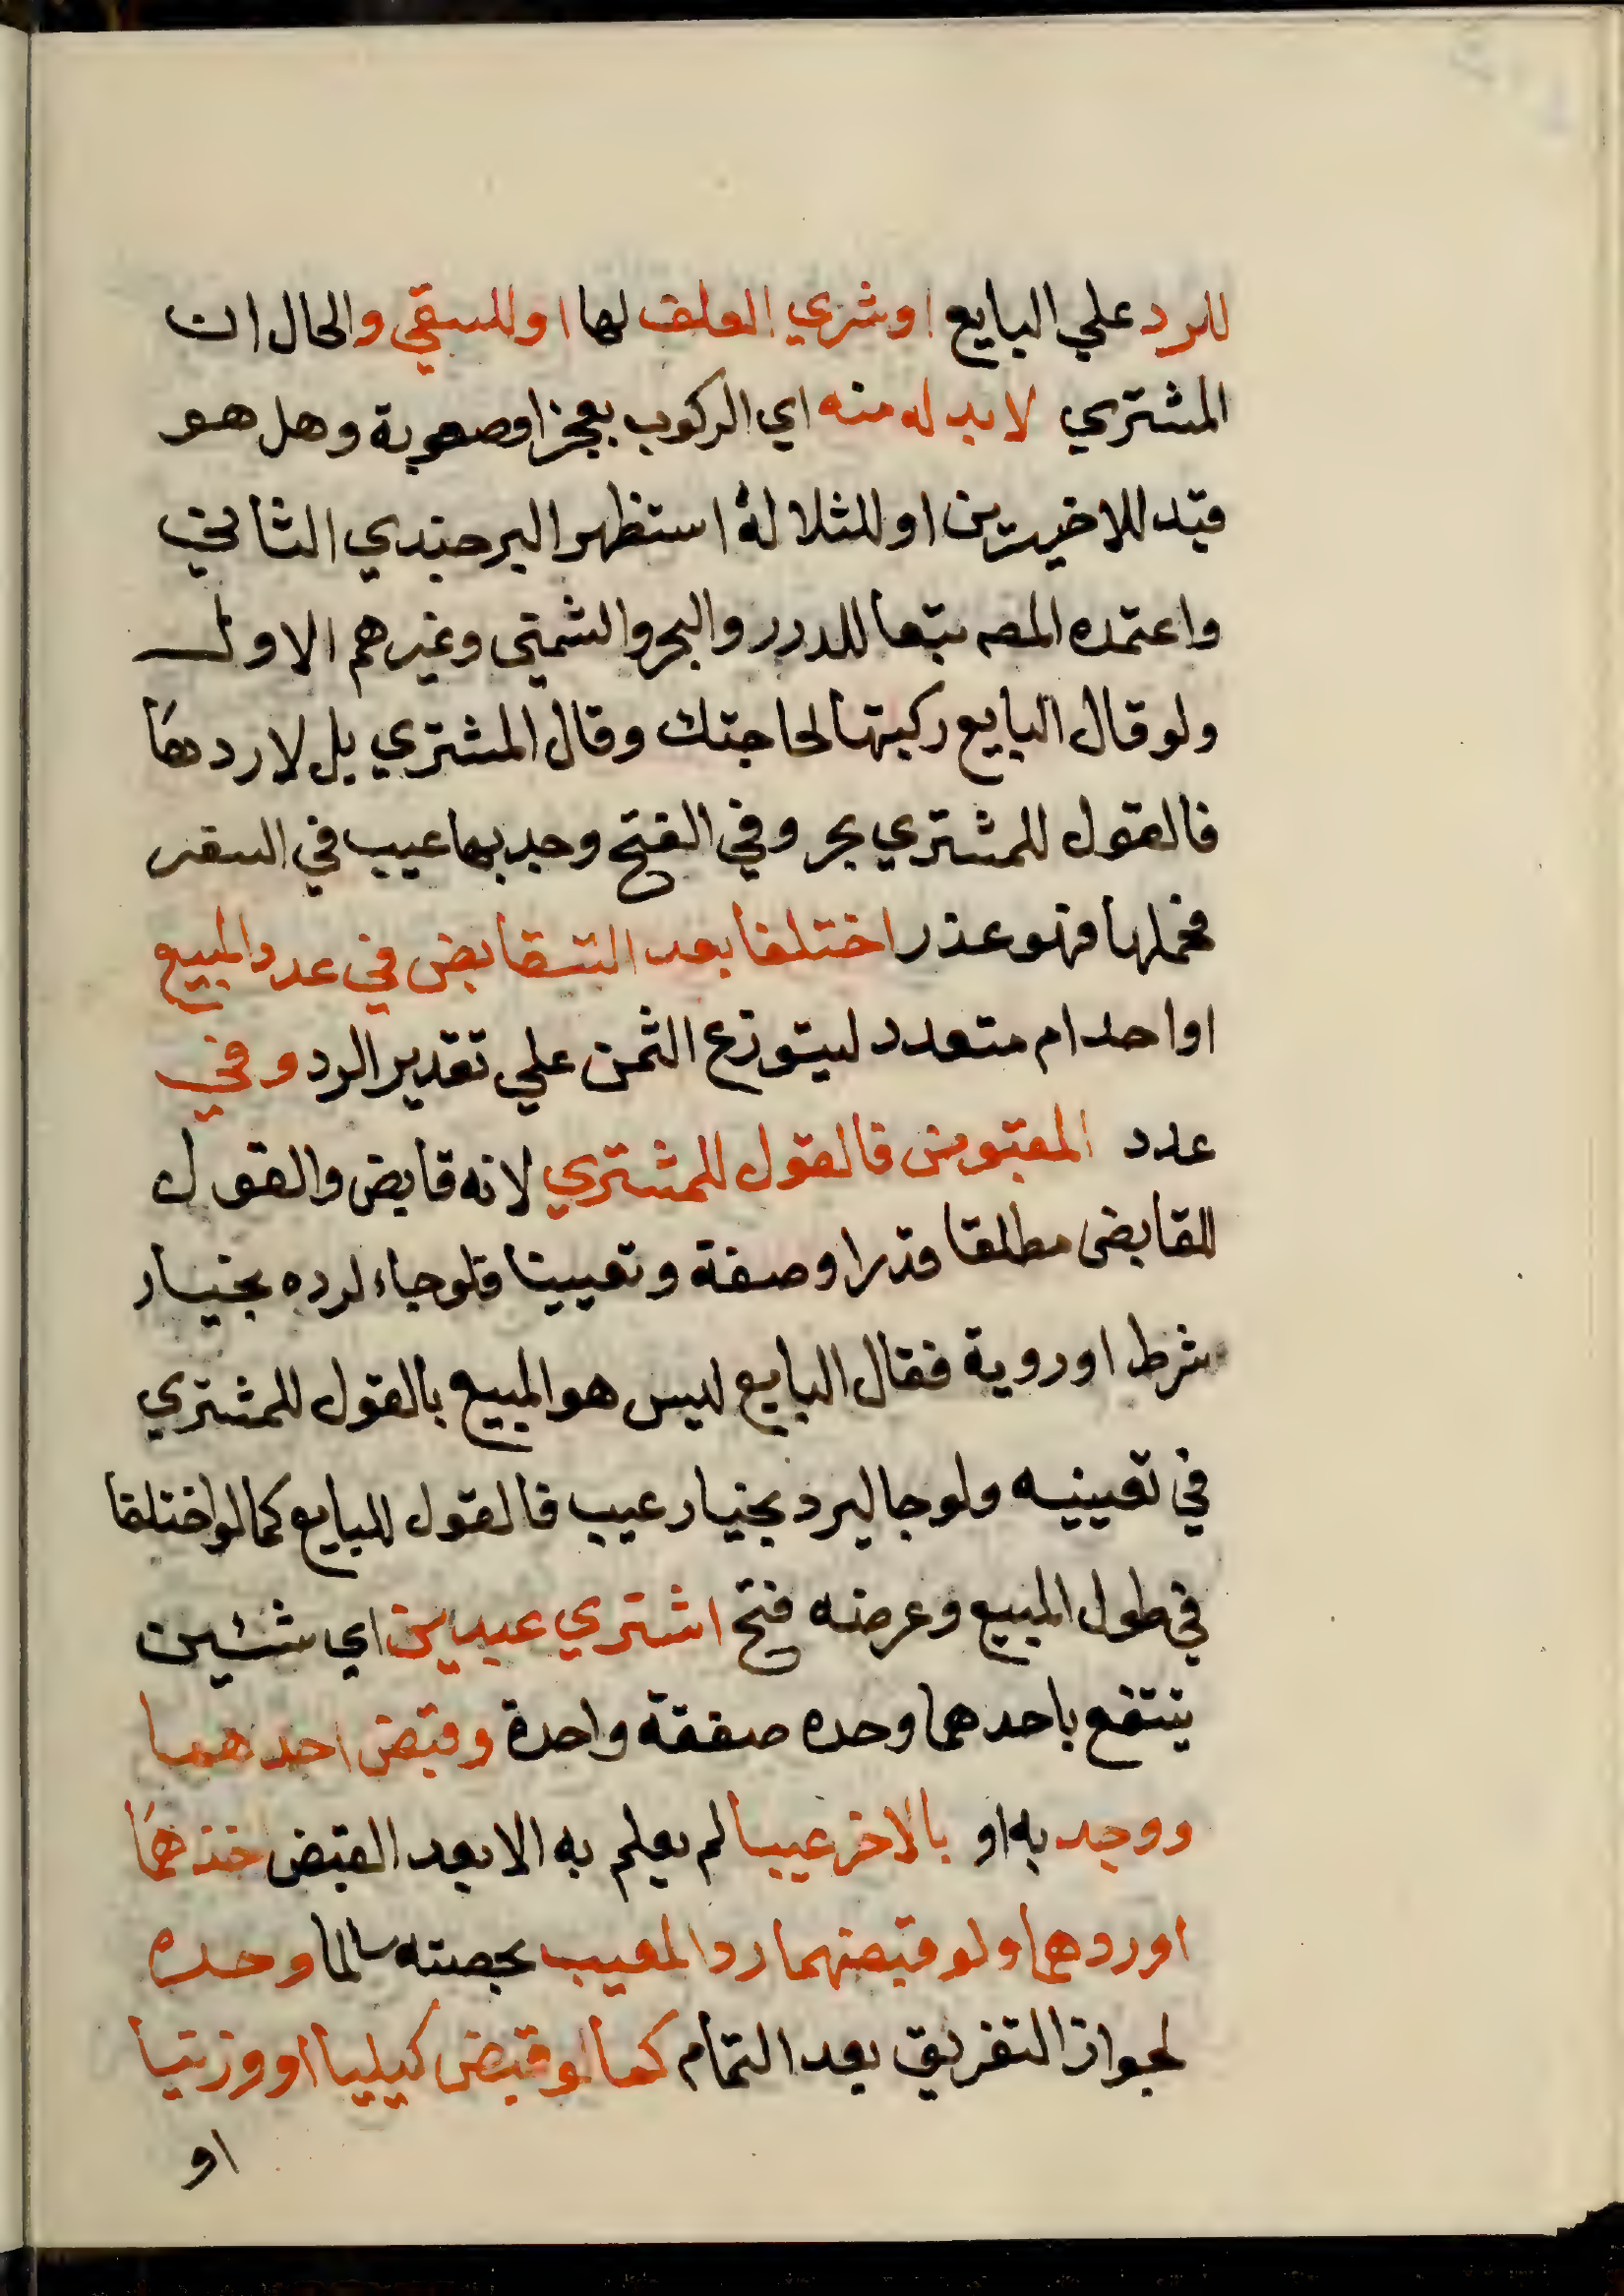 للرد علي البايع او شري العلف لها او للسقي والحال ان
المشتري لا بد له منه اي الركوب بعجز او صعوبة وهل هو
قيد للاخيرين او للثلاثة استظهر البرجندي الثاني
واعتمده المصه تبعا للدرر والبحر والشمني وغيرهم الاول
ولو قال البايع ركبتها لحاجتك وقال المشتري بل لاردها
فالقول للمشتري بحر وفي الفتح وجد بها عيب في السفر
فحملها فهو عذر اختلفا بعد التقابض في عدد المبيع
اواحد ام متعدد ليتوزع الثمن علي تقدير الرد وفي
عدد المقبوض فالقول للمشتري لانه قابض والقول
للقابض مطلقا قدرا وصفة وتعيينا فلو جاء لرده بخيار
شرط او روية فقال البايع ليس هو المبيع بالقول للمشتري
في تعيينه ولو جا ليرد بخيار عيب فالقول للبايع كما لو اختلفا
في طول المبيع وعرضه فتح اشتري عبدين اي شئين
ينتفع باحدهما وحده صفقة واحدة وقبض احدهما
ووجد به او بالاخر عيبا لم يعلم به الا بعد القبض اخذهما
او ردهما ولو قبضهما رد المعيب بحصته سالما وحده
لجواز التفريق بعد التمام كما لو قبض كيليا او وزنيا
او